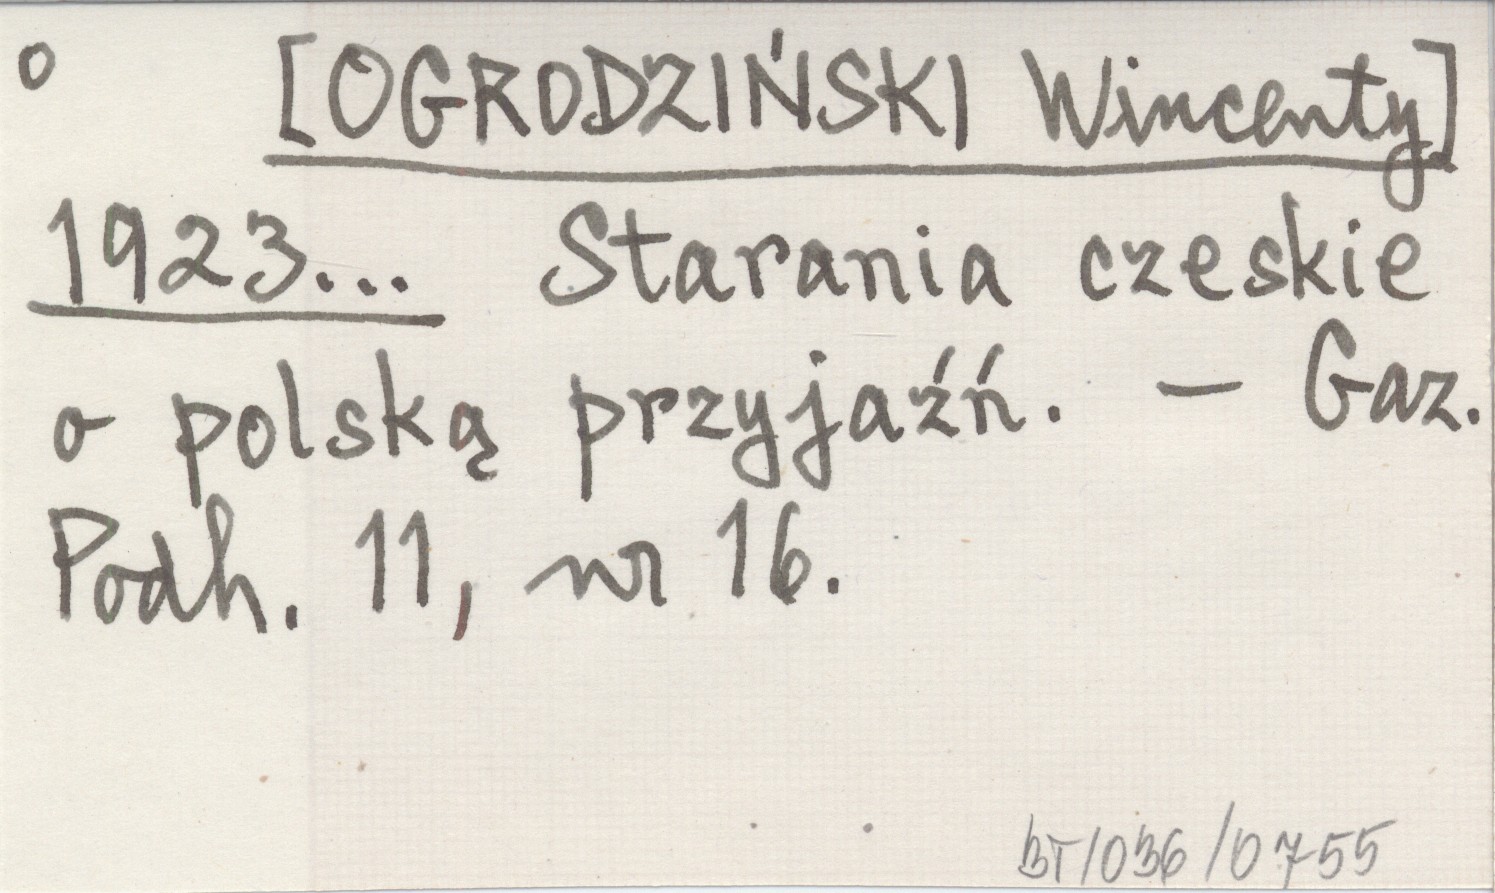 o [OGRODZIŃSKI Wincenty]
1923... Starania czeskie
o polską przyjaźń. — Gaz.
Podh. 11, nr 16.
BT/036/0755